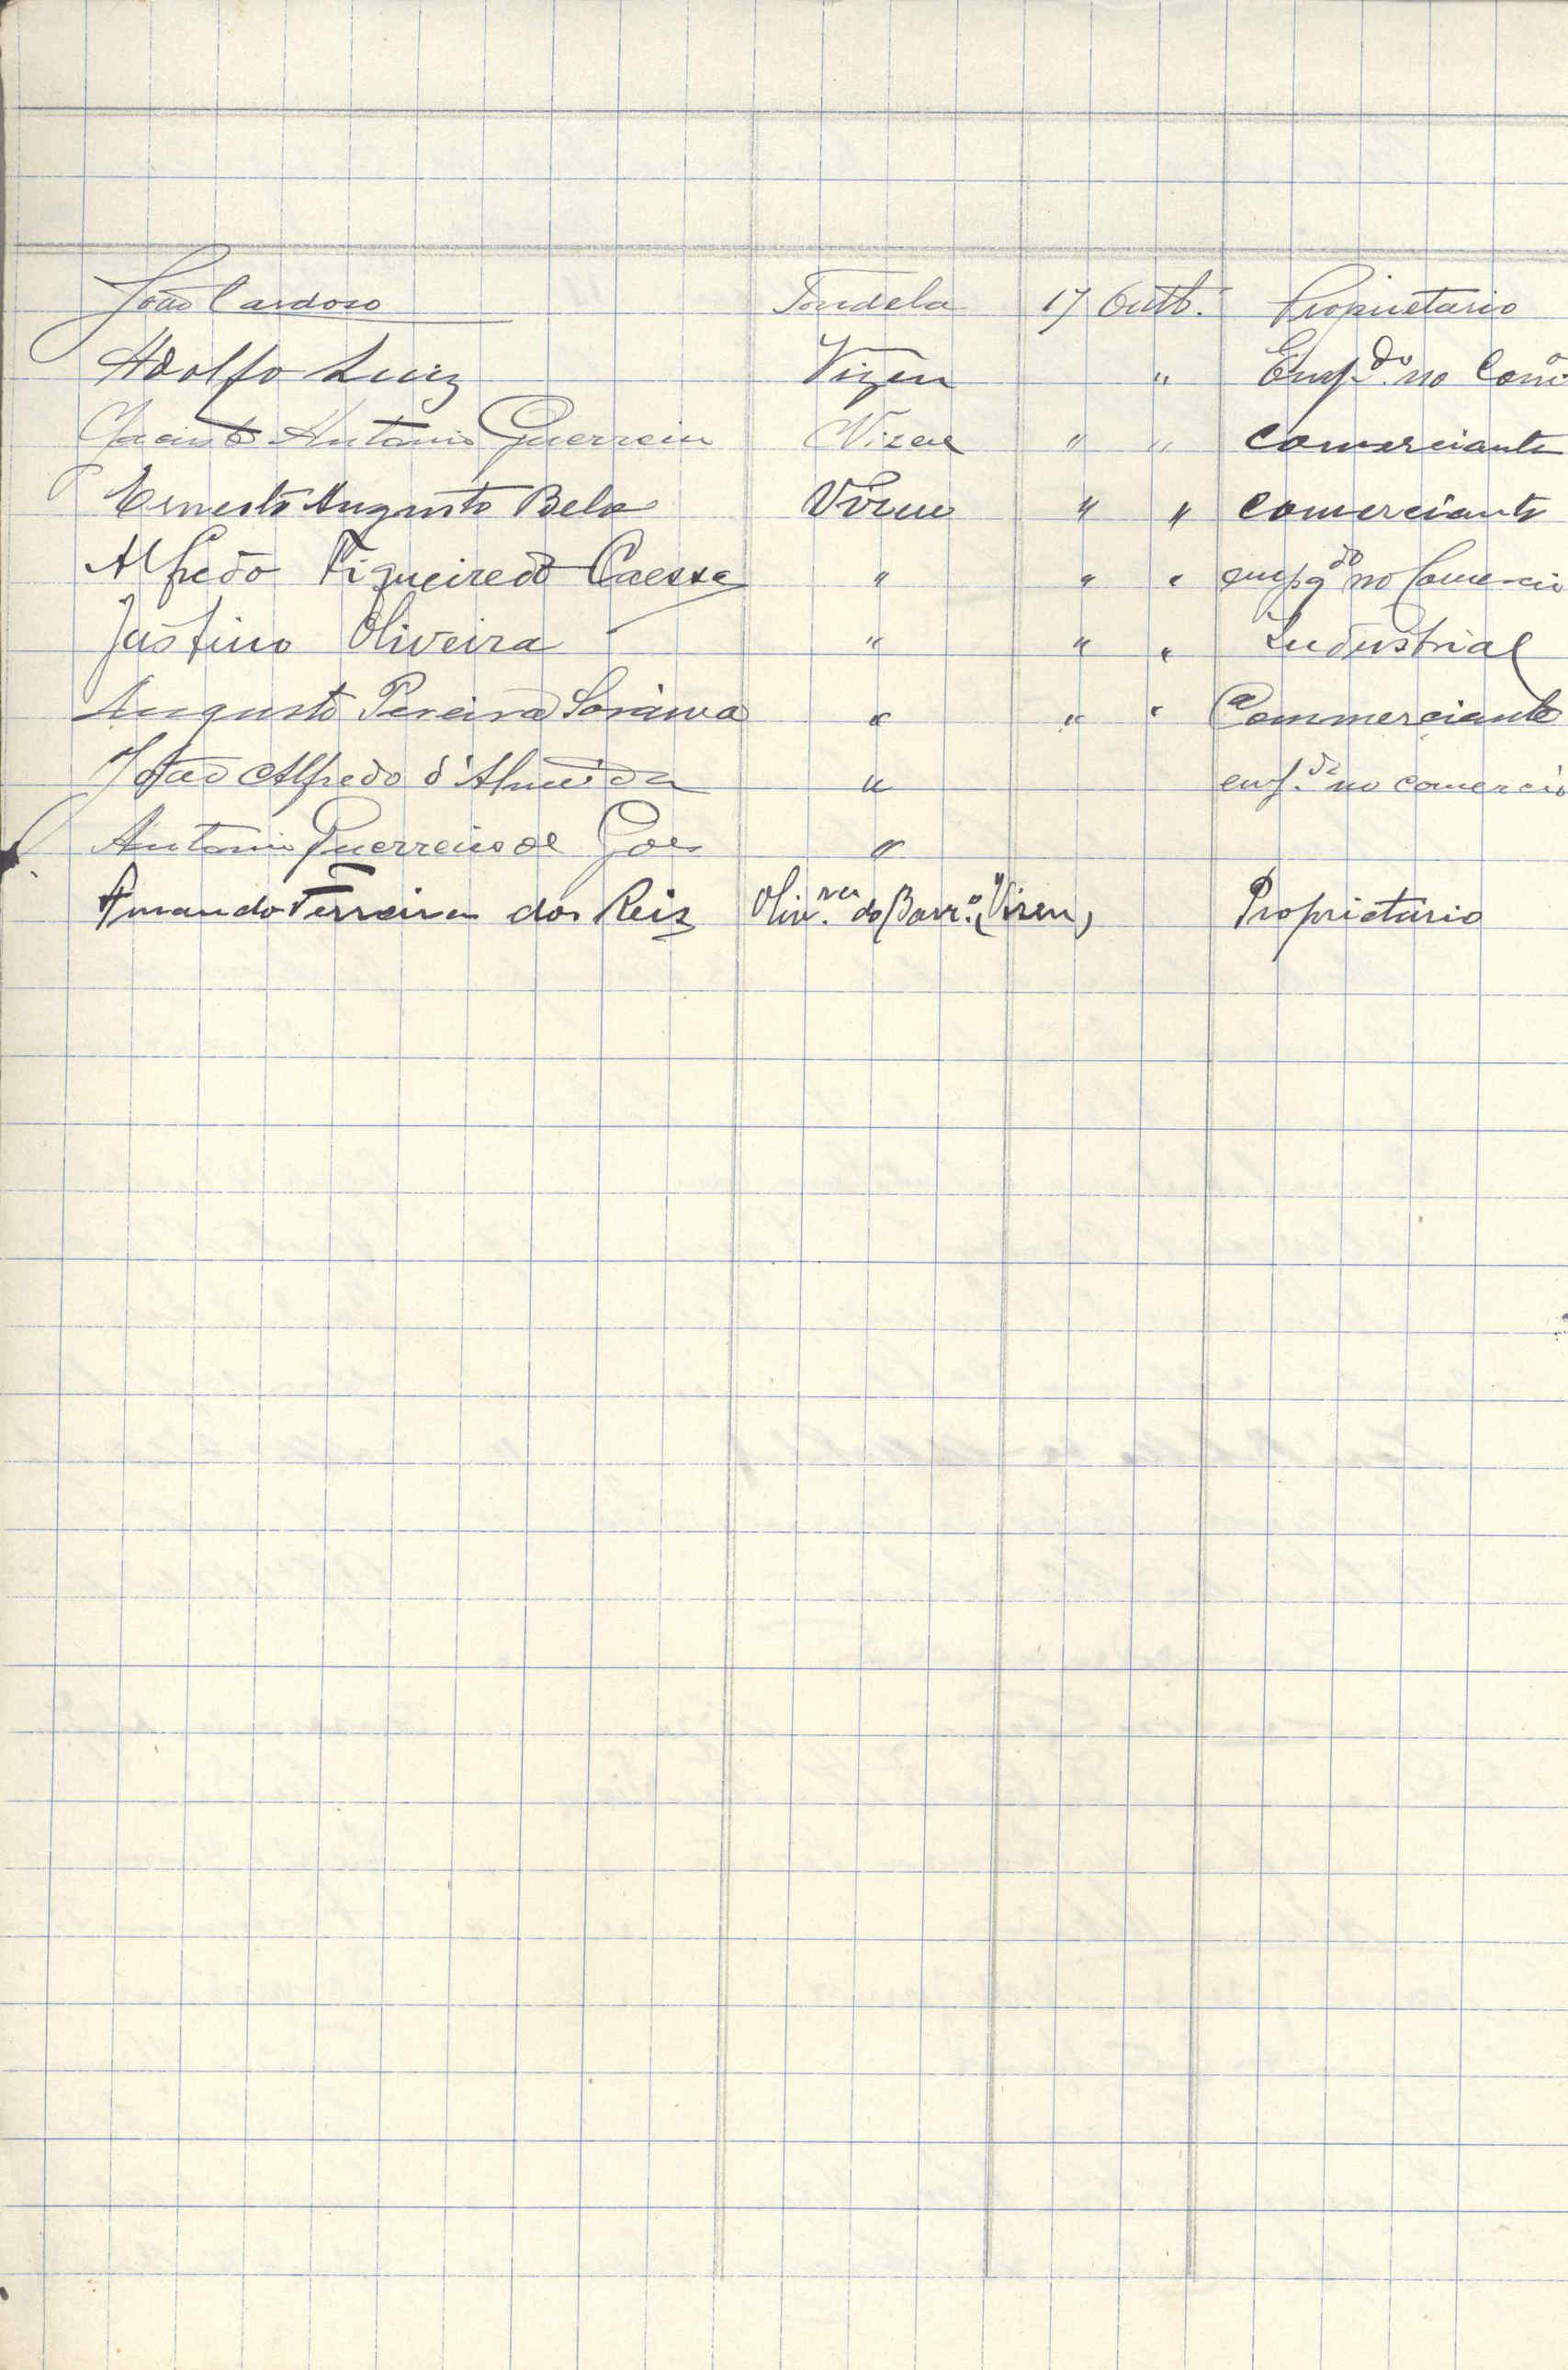 João Cardoso Tondela 17 Outb. Proprietario
Adolfo Luiz Vizeu " Emp.do no Com.o
Jacinto Antonio Guerreiro Vizeu " " comerciante
Ernesto Augusto Belo Vizeu " " comerciante
Alfredo Figueiredo " " " empg.do no Comercio
Justino Oliveira " " " Industrial
Augusto Pereira " " " Commerciante
João Alfredo d'Almeida " emp.do no comercio
Antonio Guerreiro de Goes "
Armando Ferreira dos Reis Oliv.ra do Barr.o (Vizeu) " Proprietário